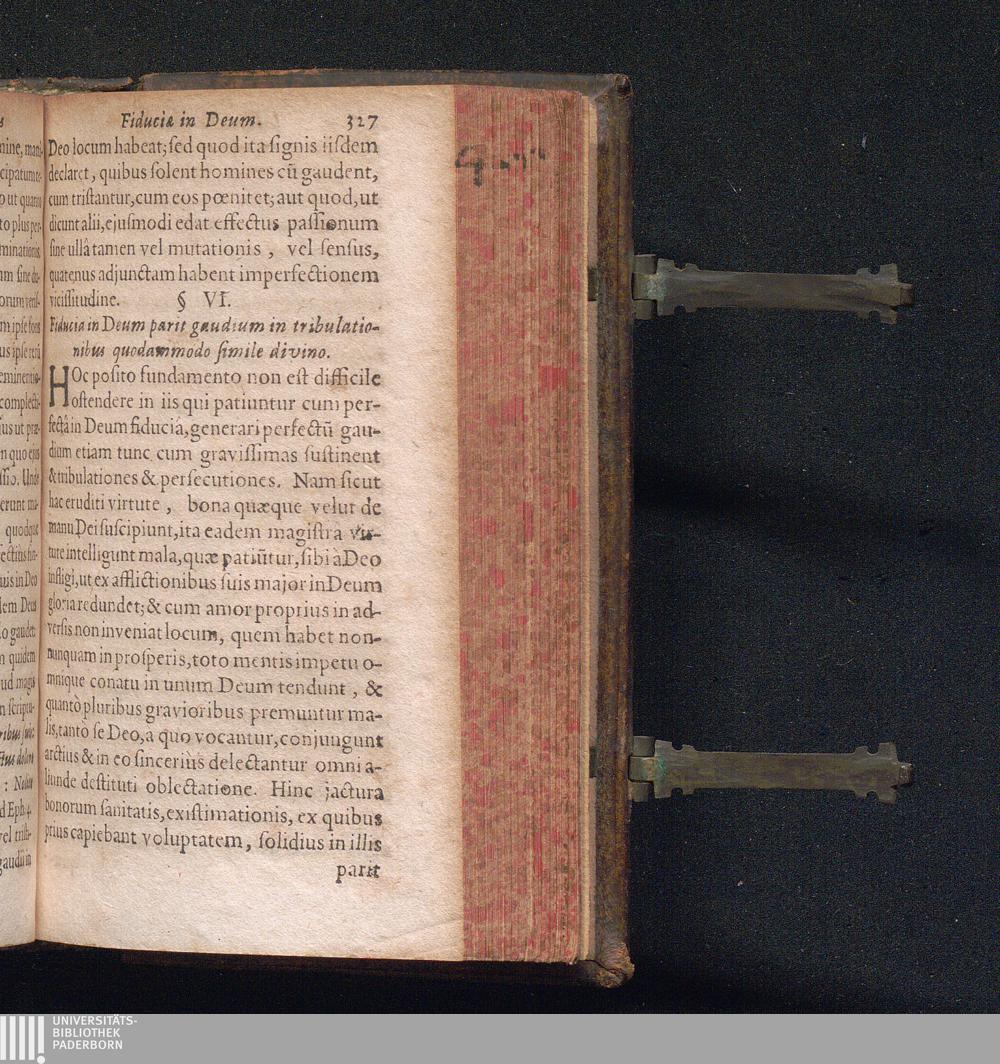 Fiduciæ in Deum. 327
Deo locum habeat; ſed quod ita ſignis iiſdem
declaret, quibus ſolent homines cũ gaudent,
cum triſtantur, cum eos pœnitet; aut quod, ut
dicunt alii, ejuſmodi edat effectus paſſionum
ſine ullâ tamen vel mutationis, vel ſenſus,
quatenus adjunctam habent imperfectionem
viciſſitudine. § VI.
Fiducia in Deum parit gaudium in tribulatio-
nibus quodammodo ſimile divino.
HOc poſito fundamento non eſt difficile
oſtendere in iis qui patiuntur cum per-
fectâ in Deum fiducia, generari perfectũ gau-
dium etiam tunc cum graviſſimas ſuſtinent
& tribulationes & perſecutiones. Nam ſicut
hac eruditi virtute, bona quæque velut de
manu Dei ſuſcipiunt, ita eadem magiſtrâ vir-
tute intelligunt mala, quæ patiũtur, ſibi à Deo
infligi, ut ex afflictionibus ſuis major in Deum
gloria redundet; & cum amor proprius in ad-
verſis non inveniat locum, quem habet non-
nunquam in proſperis, toto mentis impetu o-
mnique conatu in unum Deum tendunt, &
quantò pluribus gravioribus premuntur ma-
lis, tantò ſe Deo, a quo vocantur, conjungunt
arctius & in eo ſinceriùs delectantur omni a-
liunde deſtituti oblectatione. Hinc jactura
bonorum ſanitatis, exiſtimationis, ex quibus
prius capiebant voluptatem, ſolidius in illis
parit
UNIVERSITÄTS-
BIBLIOTHEK
PADERBORN